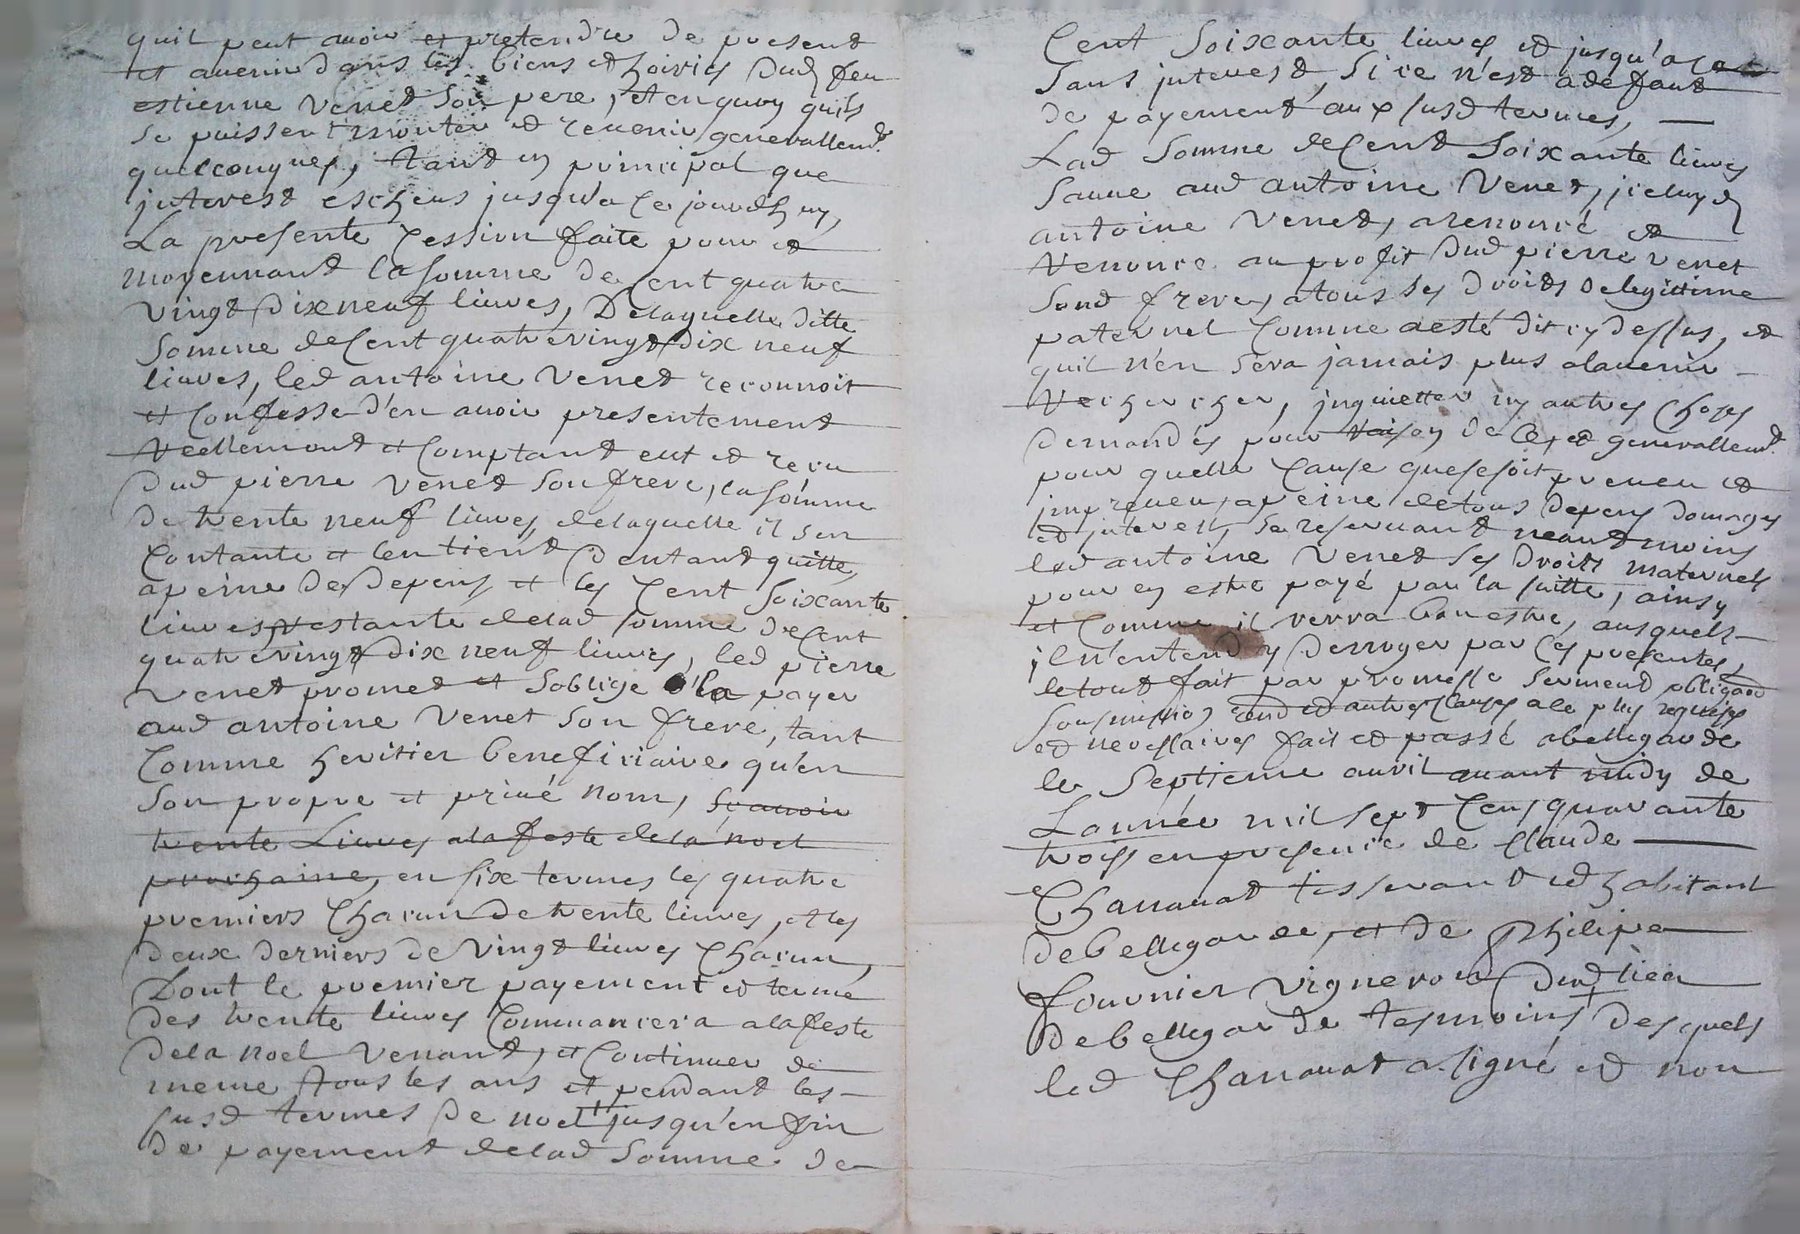 quil peut avoir et pretendre de present
et avenir dans les biens et hoiries dud feu
estienne Venet son pere, et en quoy quils
se puissent monter et revenir generallemt
quelconques, tant en principal que
interest escheus jusqu'a ce jourdhuy,
La presente Cession faite pour et
moyennant la somme de Cent quatre
Vingt dix neuf liures, Delaquelle ditte
Somme de Cent quatre vingt dix neuf
liures, led antoine Venet reconnoit
et Confesse d'en avoir presentement
Reellement et Comptant eut et receu
dud pierre Venet Son frere, la somme
De trente neuf liures, delaquelle il sen
Contante et len tient D'autant quitte,
a peine de Depens et les Cent Soixante
liures restante delad somme de Cent
quatre vingt dix neuf liures, led pierre
Venet promet et Soblige la payer
aud antoine Venet son frere, tant
Comme heritier beneficiaire qu'en
Son propre et privé nom, scavoir
trente Liures a la feste de la noel
prochaine, en six termes les quatre
premiers Chacun De trente liures, et les
deux derniers de Vingt liures Chacun,
Dont le premier payement et terme
des trente liures Commancera a la feste
de la noel Venant, et Continuer de
meme tous les ans et pendant les
susd termes De noel jusqu'en fin
De payement delad Somme de
Cent Soixante liures et jusqu'a ce
Sans interest, Si ce n'est a defaut
de payement aux susd termes,
Lad Somme de Cent Soixante liures
Sauve aud antoine Venet, iceluy d
antoine Venet, a renoncé et
Renonce au profit Dud pierre Venet
Sond frere, a tous ses droits de legittime
paternel Comme a esté dit cy dessus, et
quil n'en sera jamais plus a lavenir
Recherchér, inquietter ny autres choses
demandés pour raison De Ce, et generallemt
pour quelle Cause que se soit preveu et
impreveu, a peine de tous depens domages
et interests, se reservant neantmoins
led antoine Venet Ses Droits maternels
pour en estre payé par la suitte, ainsy
et Comme il verra bon estre, ausquels
il n'entend y Derroger par Ces presentes,
le tout fait par promesse serment obligaon
Sousmission rend et autres Clauses a le plus requises
et necessaires fait et passé a bellegarde
le Septieme avril avant midy de
Lannée mil sept Cens quarante
trois en presence de Claude
Chanavat tisserant et habitant
de bellegarde, et de Philipe
fournier Vigneron Dud lieu
de bellegarde tesmoins Desquels
led Chanavat a signé et non